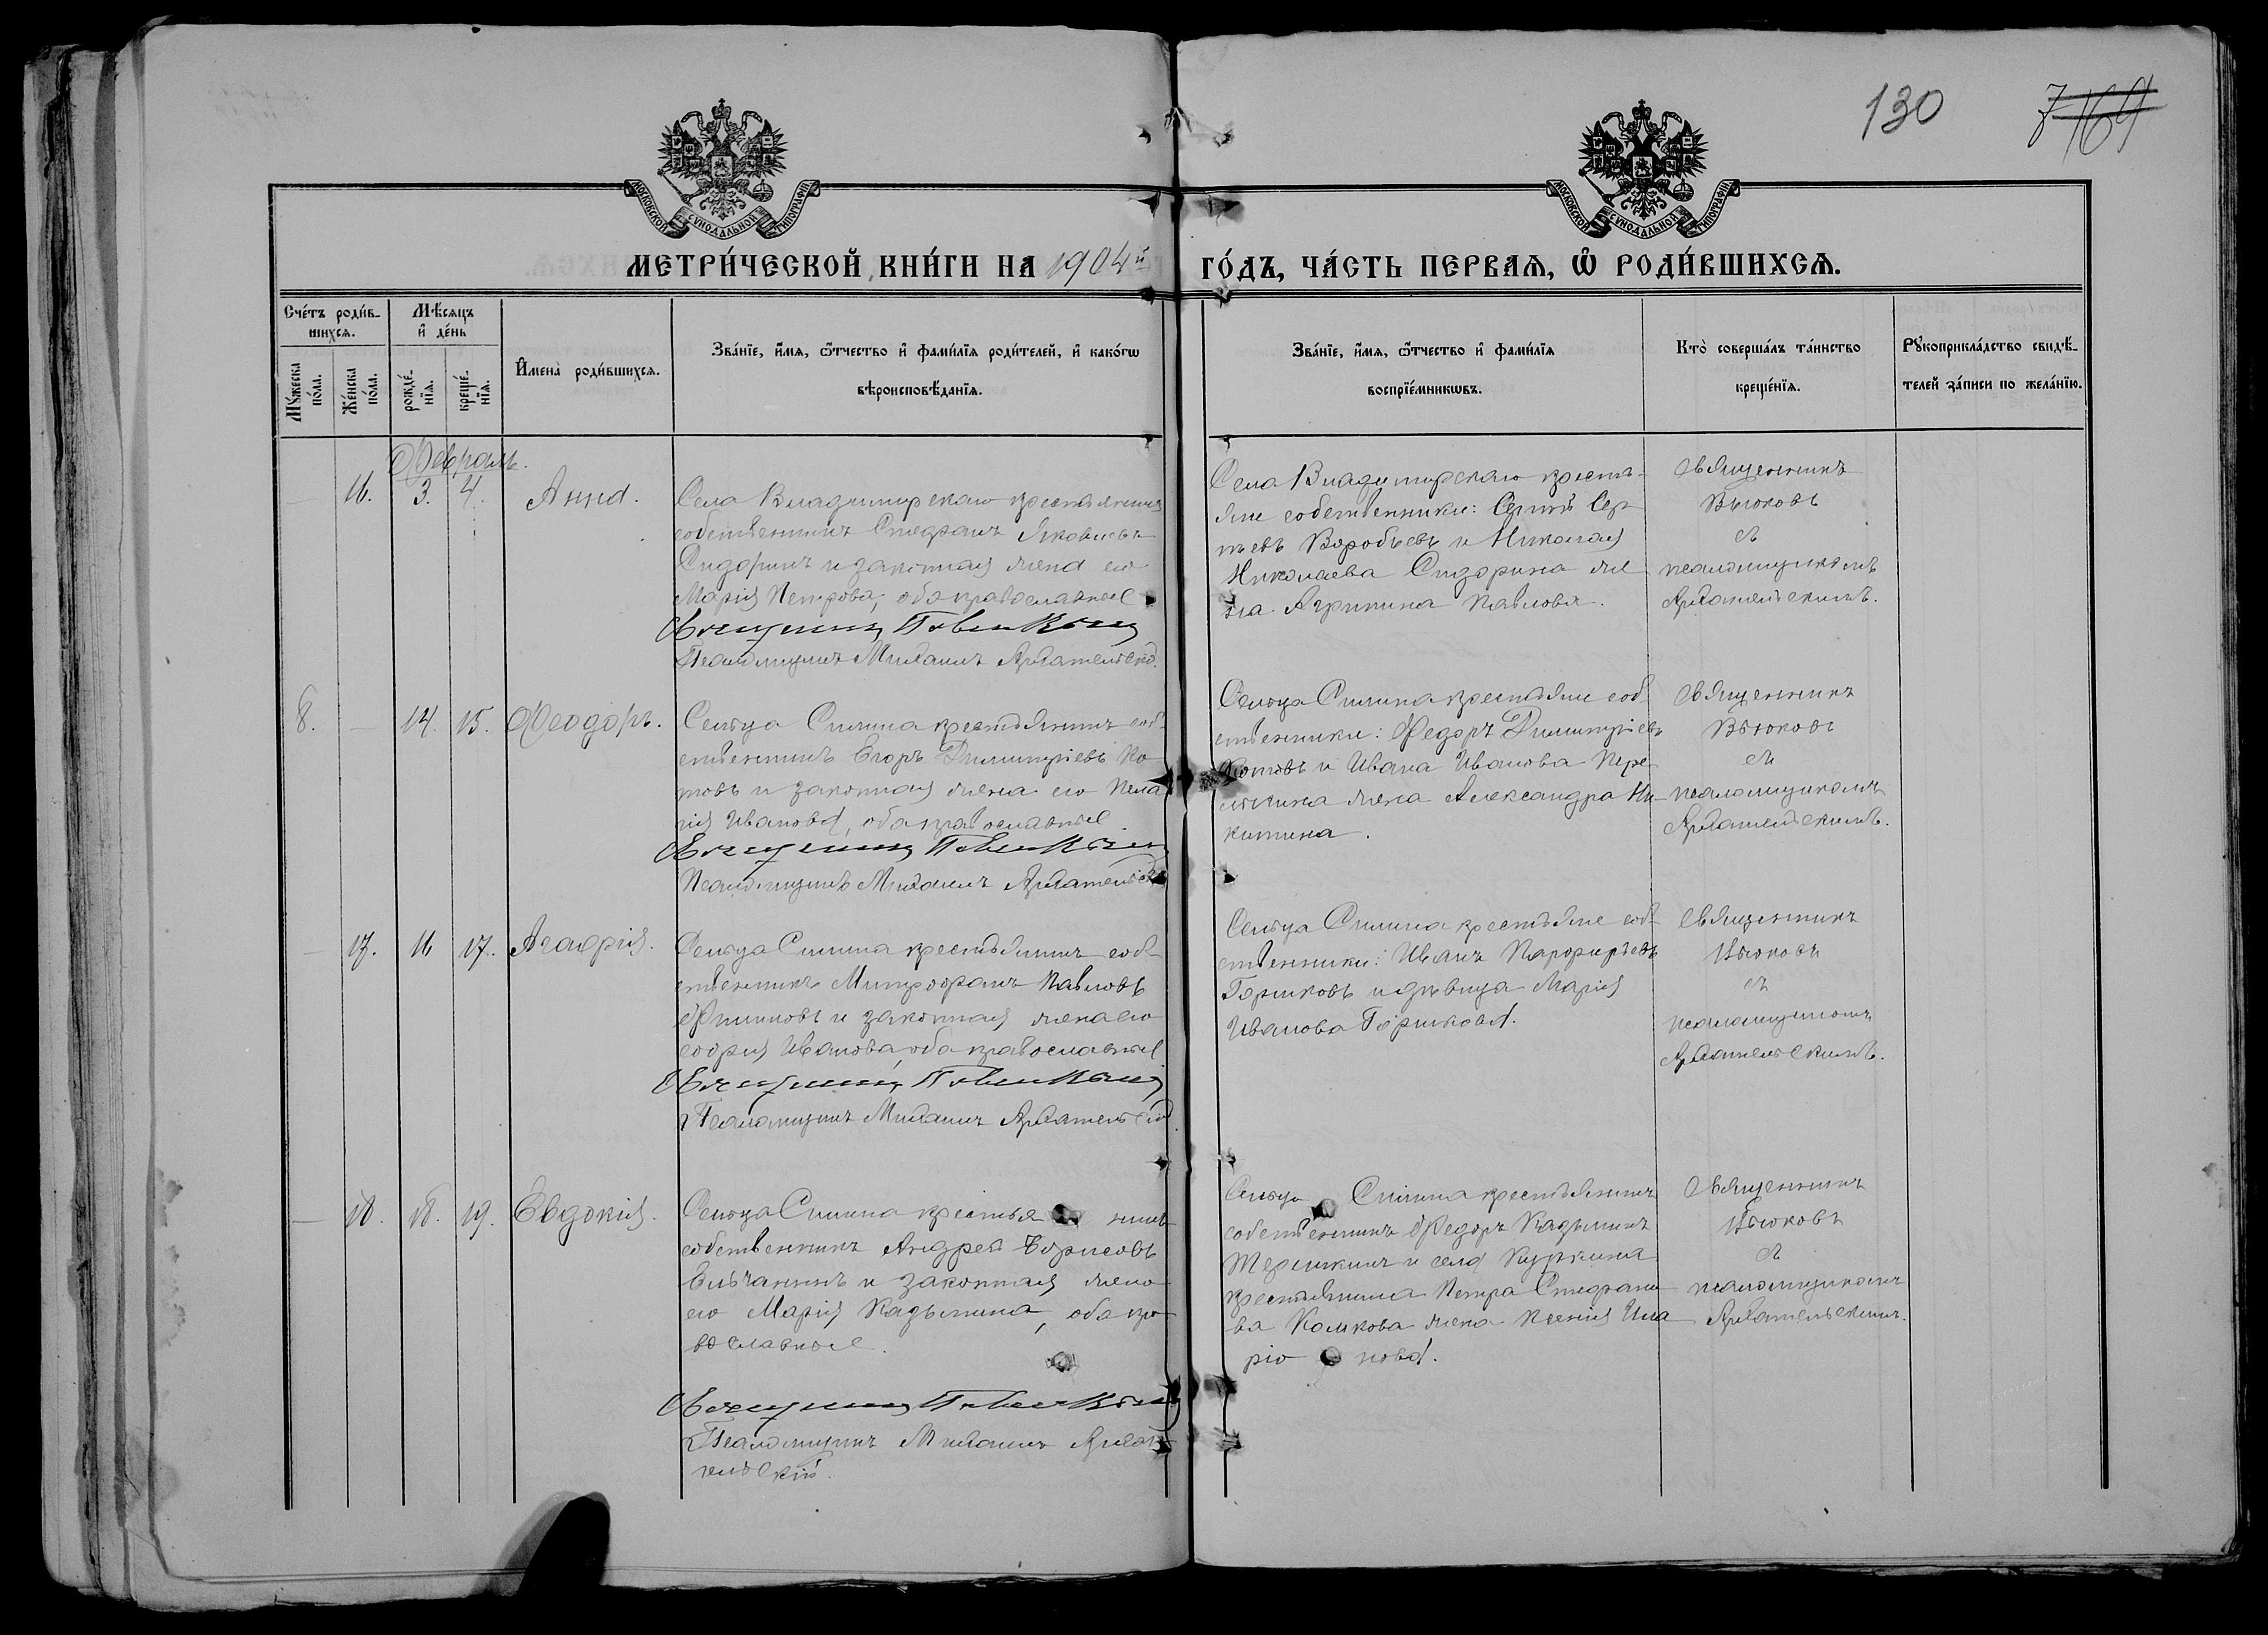 130
7 169
МОСКОВСКОЙ СѴНОДАЛЬНОЙ ТИПОГРАФІИ
МОСКОВСКОЙ СѴНОДАЛЬНОЙ ТИПОГРАФІИ
МЕТРИ́ЧЕСКОЙ КНИ́ГИ НА 1904й ГО́ДЪ, ЧА́СТЬ ПЕРВАЯ, Ѡ҆ РОДИ́ВШИХСѦ.
Сче́тъ роди́в-
шихсѧ.
Мѣ́сѧцъ
и҆ де́нь
Мꙋ́жеска по́ла.
Же́нска по́ла.
рожде́-нїѧ.
креще́-нїѧ.
И҆мена̀ роди́вшихсѧ.
Зва́нїе, и҆́мѧ, ѻ҆́тчество и҆ фами́лїѧ роди́телей, и҆ како́гѡ
вѣроисповѣ́данїѧ.
Зва́нїе, и҆́мѧ, ѻ҆́тчество и҆ фами́лїѧ
воспрїе́мникѡвъ.
Кто̀ соверша́лъ та́инство
креще́нїѧ.
Рꙋкоприкла́дство свидѣ́-
телей за́писи по жела́нїю.
Февраль.
16. 3. 4. Анна.
Села Владимирскаго крестьянинъ
собственникъ Стефанъ Яковлевъ
Сидоринъ и законная жена его
Марія Петрова, оба православные
Священникъ Павелъ Вьюковъ
Псаломщикъ Михаилъ Архангельскій.
Села Владимирскаго кресть-
яне собственники: Сергѣй Сер-
гѣевъ Воробьевъ и Николая
Николаева Сидорина же
на Агрипина Павлова.
Священникъ
Вьюковъ
съ
псаломщикомъ
Архангельскимъ.
8. — 14. 15. Ѳеодоръ.
Сельца Силина крестьянинъ соб-
ственникъ Егоръ Димитріевъ Ко
товъ и законная жена его Пела
гія Иванова, оба православные.
Священникъ Павелъ Вьюковъ
Псаломщикъ Михаилъ Архангельскій
Сельца Силина крестьяне соб-
ственники: Федоръ Димитріевъ
Котовъ и Ивана Иванова
жена Александра Ни-
китина.
Священникъ
Вьюковъ
съ
псаломщикомъ
Архангельскимъ.
— 17. 16 17. Агафія.
Сельца Силина крестьянинъ соб-
ственникъ Митрофанъ Павловъ
и законная жена его
Софія Иванова, оба православные
Священникъ Павелъ Вьюковъ
Псаломщикъ Михаилъ Архангельскій.
Сельца Силина крестьяне соб-
ственники: Иванъ Парфирьевъ
Горшковъ и дѣвица Марія
Иванова Горшкова.
Священникъ
Вьюковъ
съ
псаломщикомъ
Архангельскимъ.
— 18. 18. 19. Евдокія.
Сельца Силина крестья нинъ
собственникъ Андрей Борисовъ
и законная жена
его Марія Кадьмина, оба пра
вославные.
Священникъ Павелъ Вьюковъ
Псаломщикъ Михаилъ Архан
гельскій.
Сельца Силина крестьянинъ
собственникъ Федоръ Кадьминъ
и села Куркина
крестьянина Петра Стефано
ва Комкова жена Ксенія Ила
ріо нова.
Священникъ
Вьюковъ
съ
псаломщикомъ
Архангельскимъ.